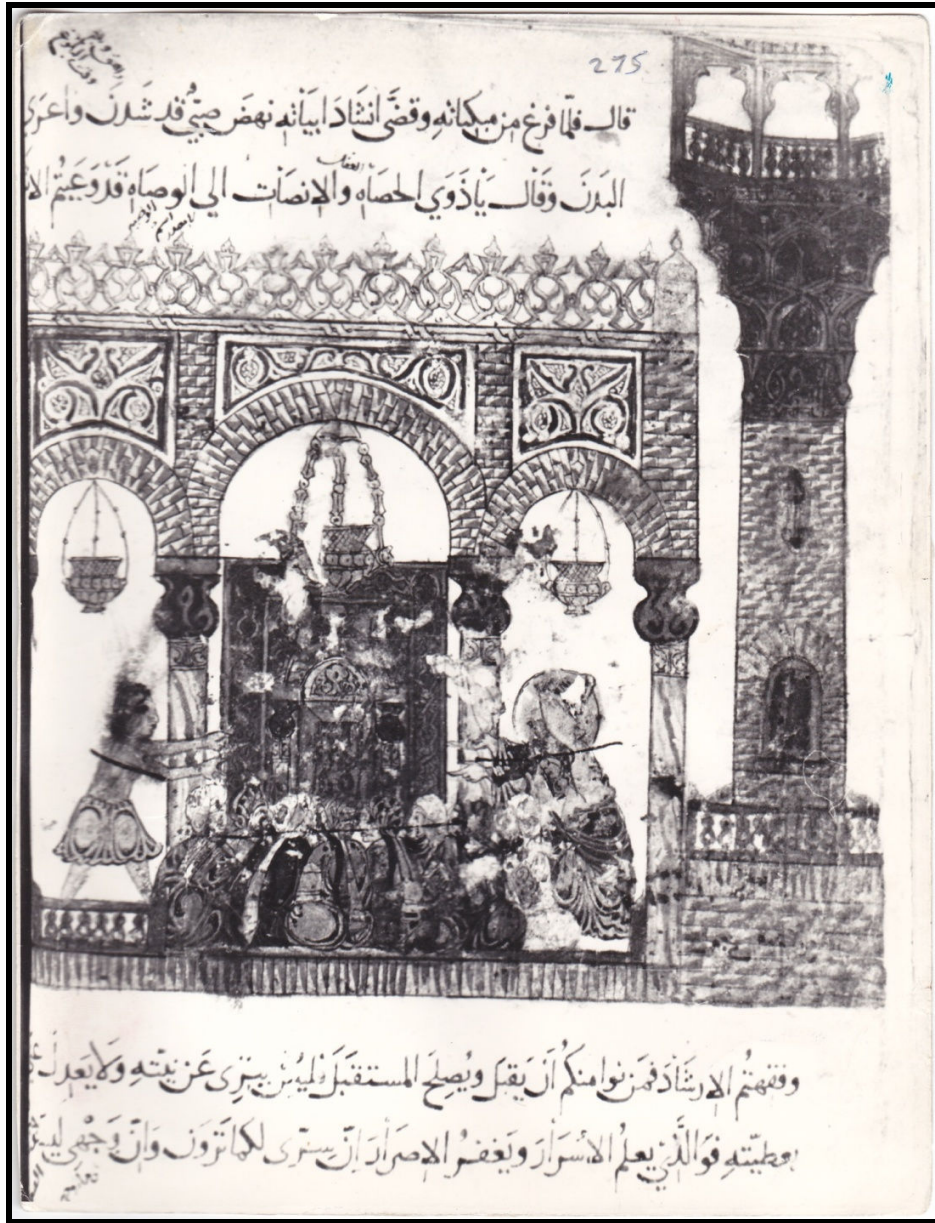 275
قال فلمّا فرغ من مبكياته وقضّى انشاد ابياته نهض صبيّ قد شدن واعرى
البدن وقال يا ذوي الحصاه والانصات الي الوصاه قد وعيتم
العقل
وفقهتم الارشاد فمن نوا منكم أن يقبل ويصلح المستقبل فليبن ببرّى عن نيّته ولا يعدل
بعطيّته فوالذي يعلم الأسرار ويغفر الاصرار انّ سرّى لكما ترون وانّ وجهى